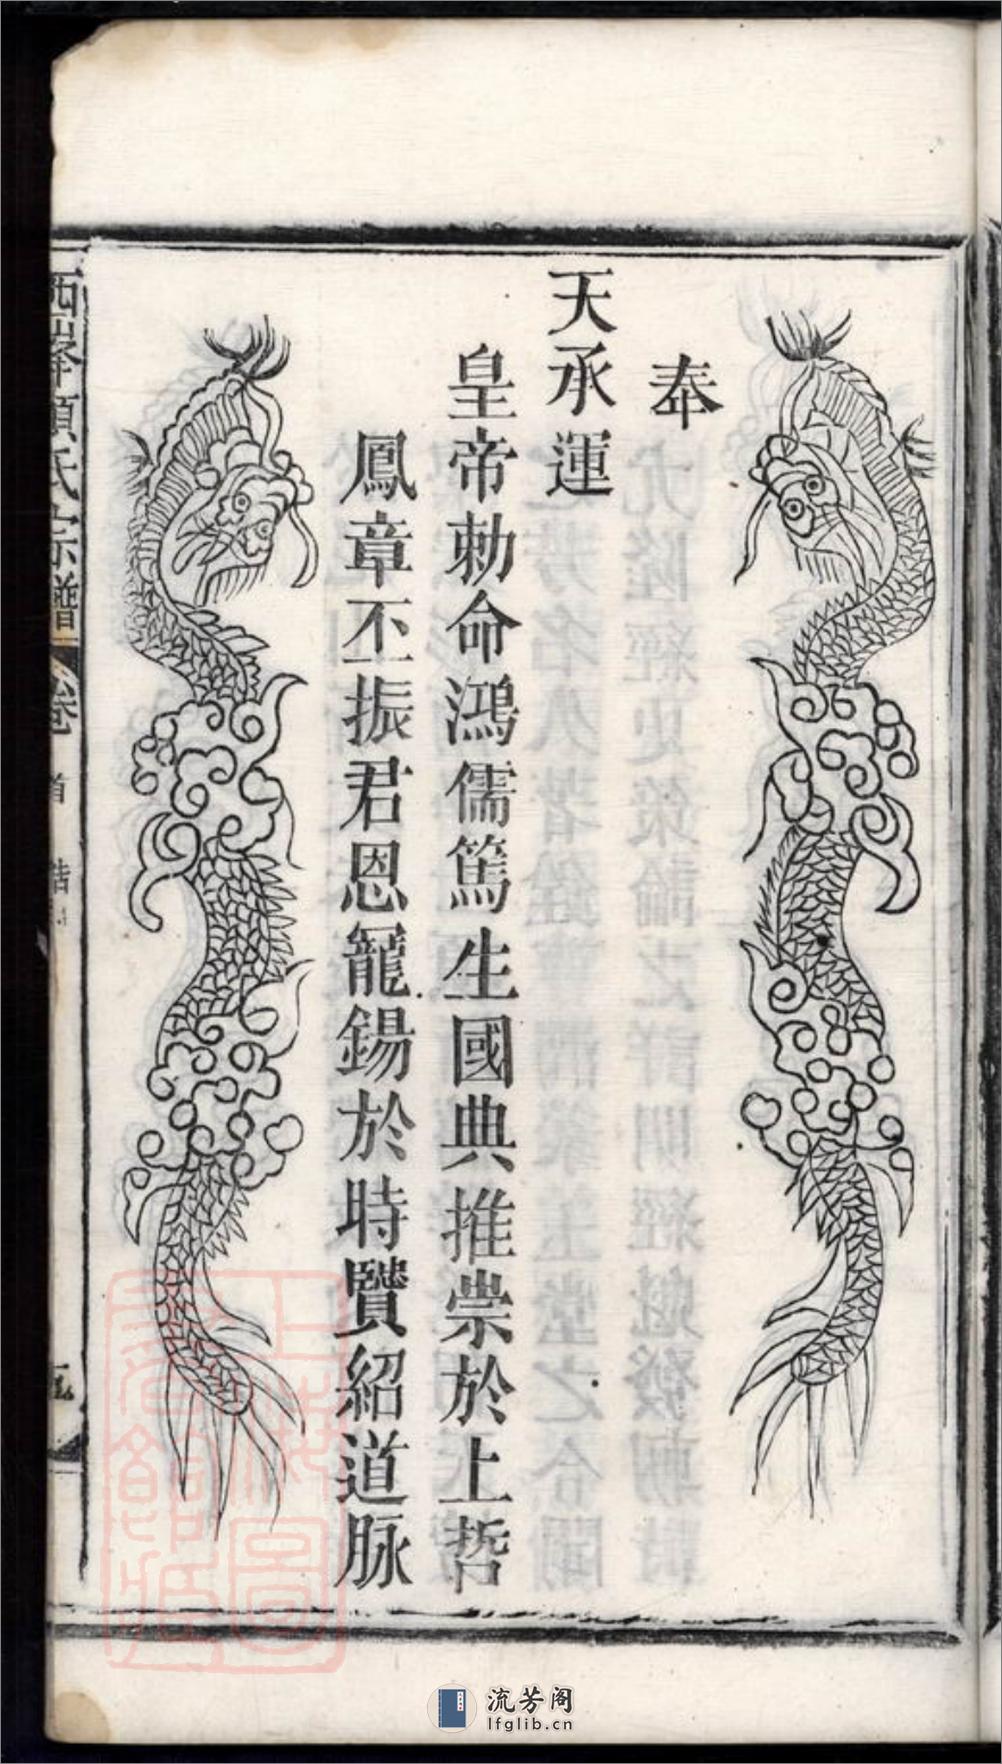 奉
天承運
皇帝勅命鴻儒篤生國典推崇於上哲
鳳章丕振君恩寵錫於時賢紹道脉
西峯顧氏宗譜
卷
首
誥
九
上海圖書館藏
流芳阁
lfglib.cn